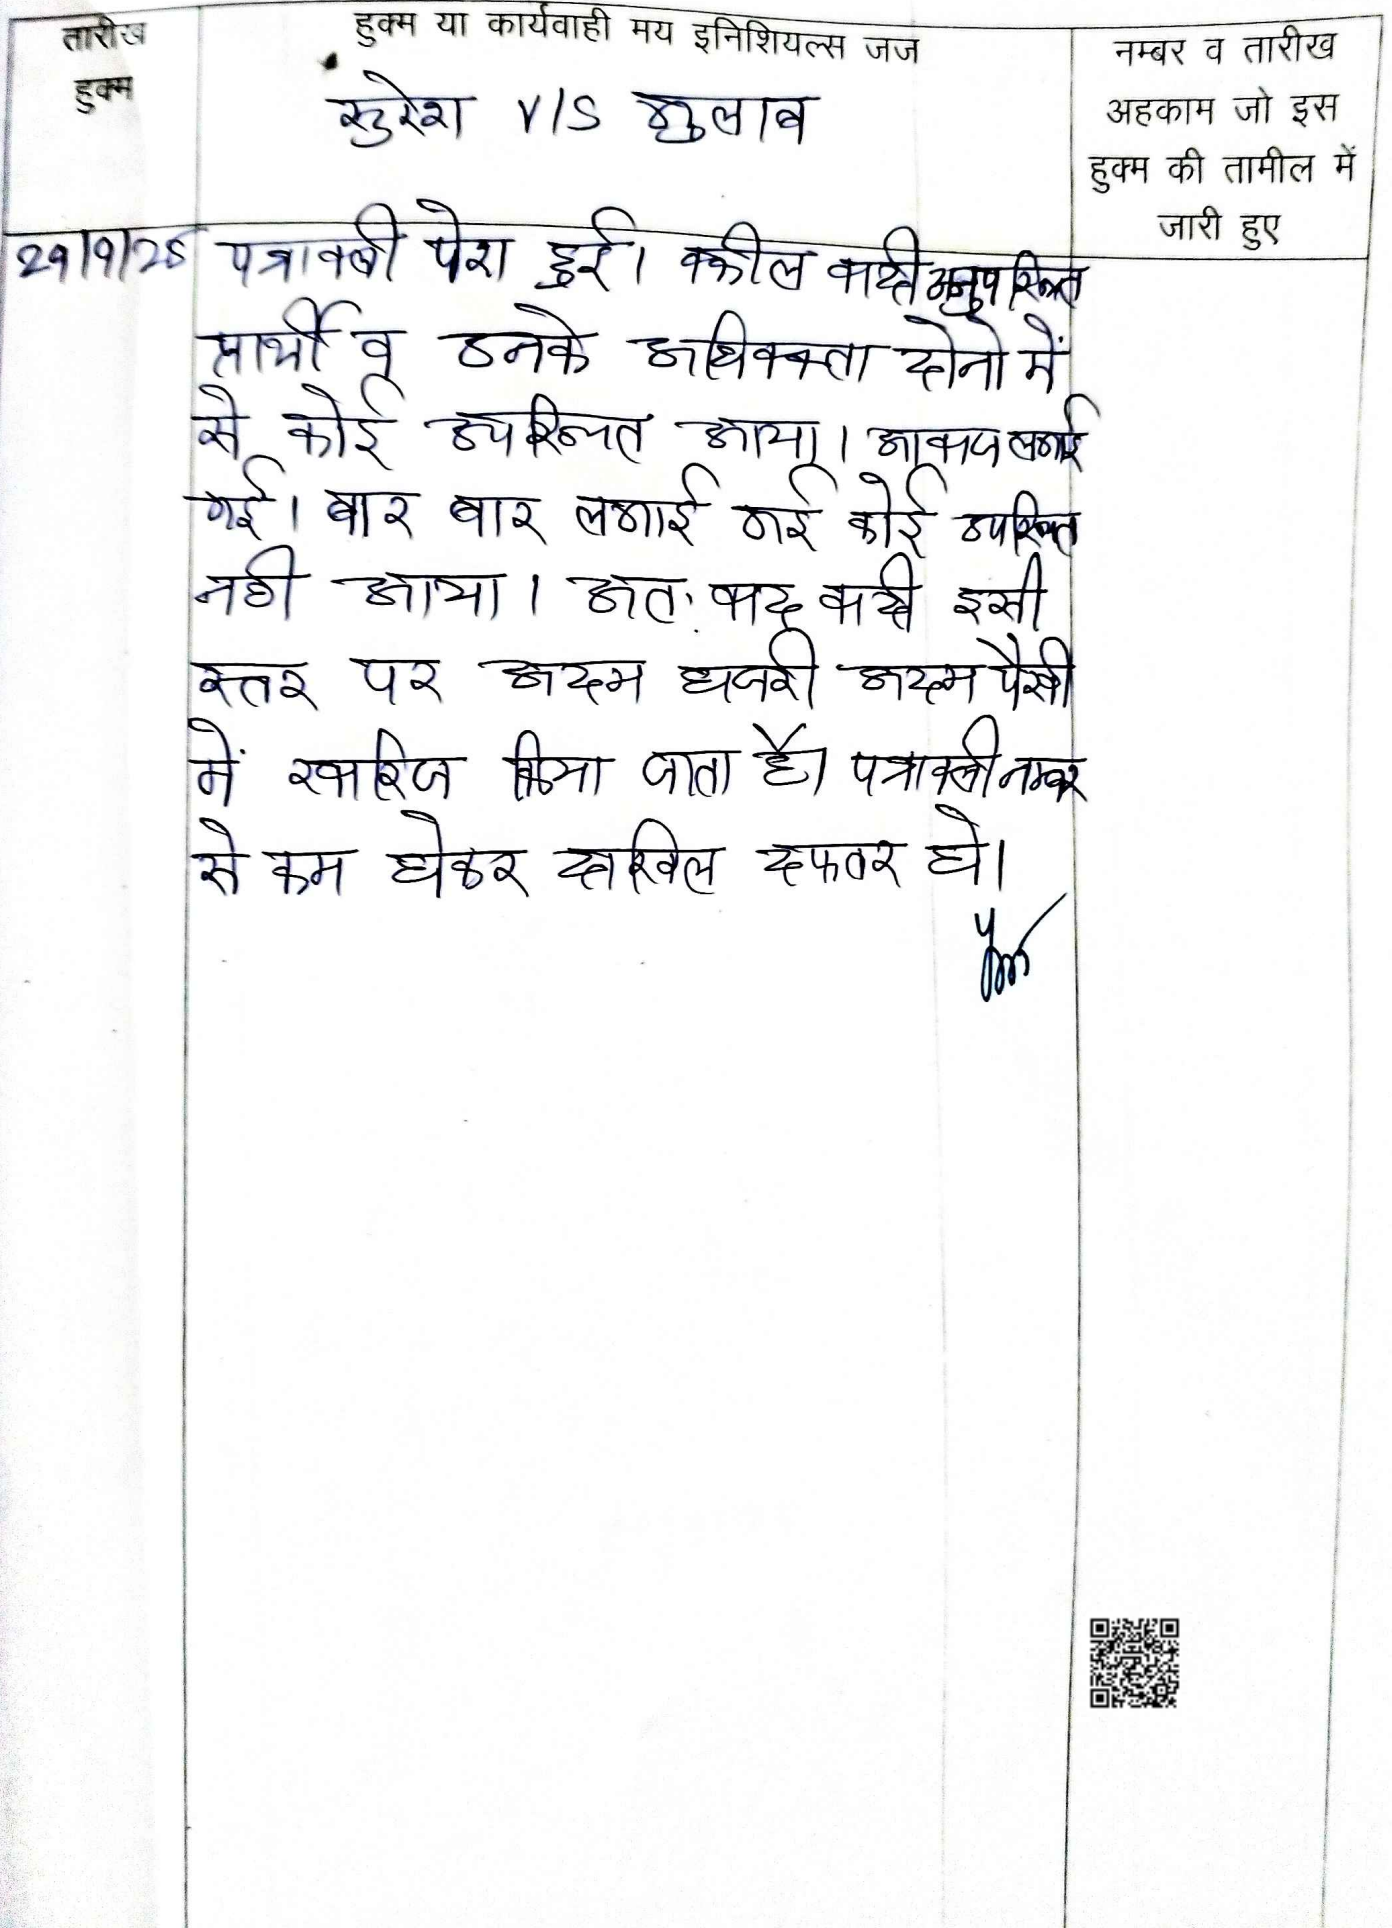 तारीख
हुक्म
हुक्म या कार्यवाही मय इनिशियल्स जज
सुरेश V/S गुलाब
नम्बर व तारीख
अहकाम जो इस
हुक्म की तामील में
जारी हुए
29/9/25 पत्रावली पेश हुई। वकील वादी अनुपस्थित
प्रार्थी व उनके अधिवक्ता दोनो में
से कोई उपस्थित आया। आवाज लगाई
गई। बार बार लगाई गई कोई उपस्थित
नही आया। अतः वाद वादी इसी
स्तर पर अदम हाजरी अदम पैरवी
में खारिज किया जाता है। पत्रावली नम्बर
से कम होकर दाखिल दफतर हो।